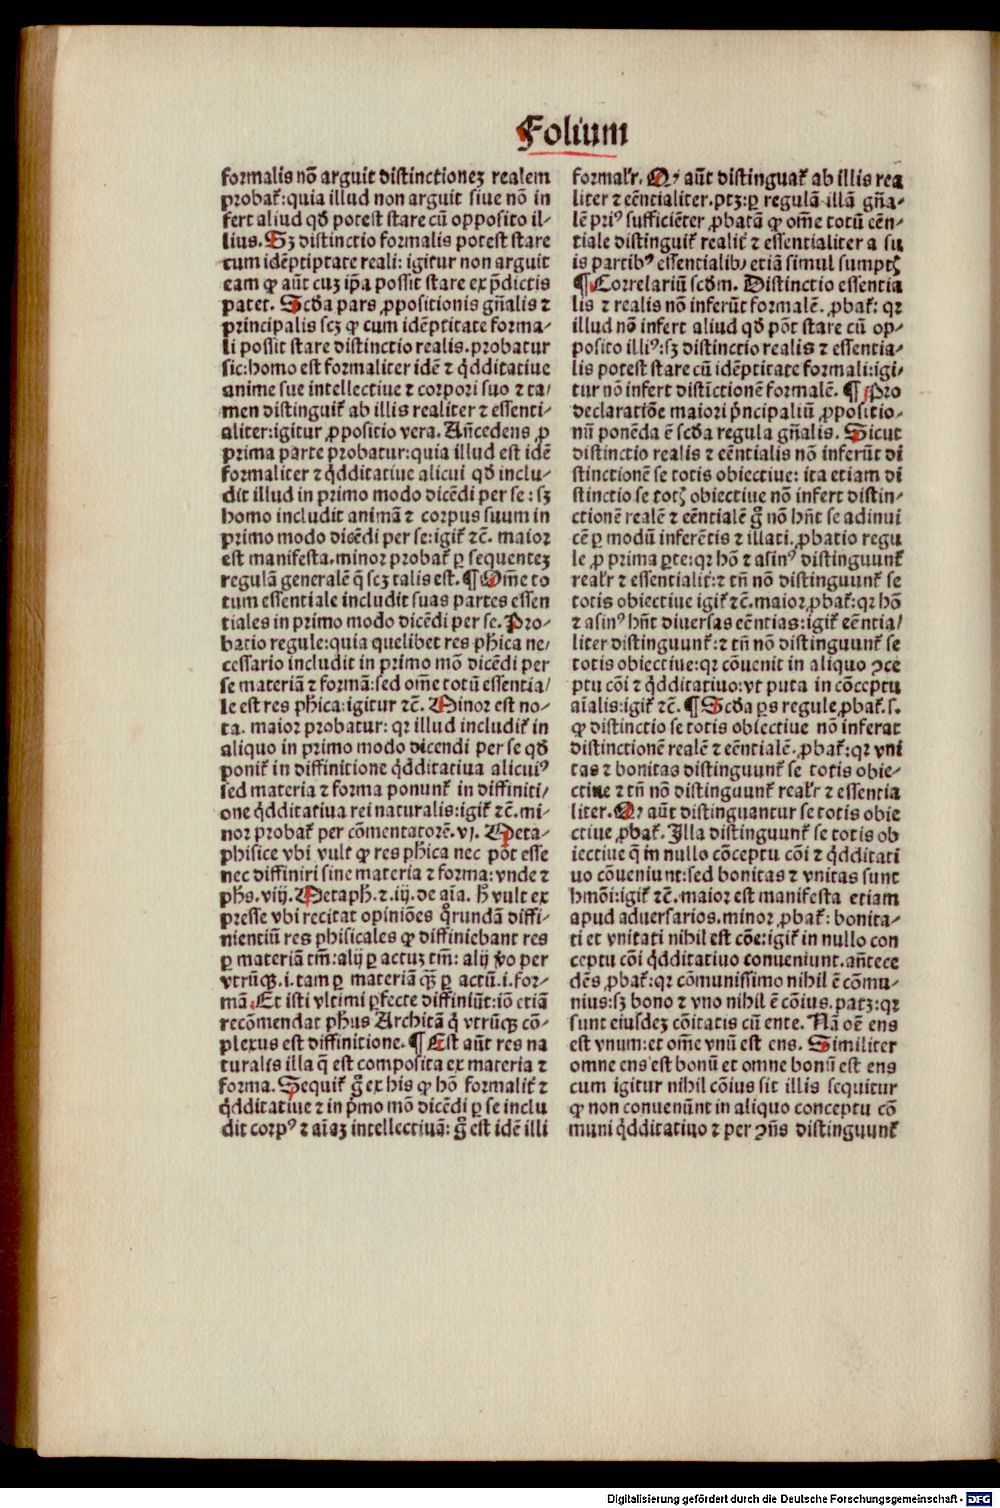 Folium
formalis nõ arguit distinctionez realem
probat᷑: quia illud non arguit siue nõ in
fert aliud qď potest stare cũ opposito il⸗
lius. Sꝫ distinctio formalis potest stare
cum idẽptiptate reali: igitur non arguit
eam ꝙ aũt cuz ip̃a possit stare ex p̃dictis
patet. Scďa pars ꝓpositionis gñalis ⁊
principalis scꝫ ꝙ cum idẽptitate forma⸗
li possit stare distinctio realis. probatur
sic: homo est formaliter idẽ ⁊ q̃dditatiue
anime sue intellectiue ⁊ corpori suo ⁊ ta⸗
men distinguit᷑ ab illis realiter ⁊ essenti⸗
aliter: igitur ꝓpositio vera. Añcedens ꝓ
prima parte probatur: quia illud est idẽ
formaliter ⁊ q̃dditatiue alicui qď inclu⸗
dit illud in primo modo dicẽdi per se: sꝫ
homo includit animã ⁊ corpus suum in
primo modo dicẽdi per se: igit᷑ ⁊c̃. maior
est manifesta. minor probat᷑ ꝑ sequentez
regulã generalẽ q̃ scꝫ talis est. ¶ Om̃e to
tum essentiale includit suas partes essen
tiales in primo modo dicẽdi per se. Pro⸗
batio regule: quia quelibet res ph̃ica ne⸗
cessario includit in primo mõ dicẽdi per
se materiã ⁊ formã: sed om̃e totũ essentia⸗
le est res ph̃ica: igitur ⁊c̃. Minor est no⸗
ta. maior probatur: qꝛ illud includit᷑ in
aliquo in primo modo dicendi per se qď
ponit᷑ in diffinitione q̃dditatiua alicuiꝰ
sed materia ⁊ forma ponunt᷑ in diffiniti⸗
one q̃dditatiua rei naturalis: igit᷑ ⁊c̃. mi⸗
nor probat᷑ per cõmentatorẽ. vj. Meta⸗
phisice vbi vult ꝙ res ph̃ica nec põt esse
nec diffiniri sine materia ⁊ forma: vnde ⁊
ph̃s. viij. Metaph̃. ⁊. ij. de aĩa. h̃ vult ex
presse vbi recitat opiniões q̊rundã diffi⸗
nientiũ res phisicales ꝙ diffiniebant res
ꝑ materiã tm̃: alij ꝑ actuꝫ tm̃: alij ṽo per
vtrũqꝫ. i. tam ꝑ materiã qꝫ̃ ꝑ actũ. i. for⸗
mã. Et isti vltimi ꝑfecte diffiniũt: iõ etiã
recõmendat phũs Architã q̃ vtrũqꝫ cõ⸗
plexus est diffinitione. ¶ Est aũt res na
turalis illa q̃ est composita ex materia ⁊
forma. Sequit᷑ g̊ ex his ꝙ hõ formalit᷑ ⁊
q̃dditatiue ⁊ in p̃mo mõ dicẽdi ꝑ se inclu
dit corpꝰ ⁊ aĩaꝫ intellectiuã: g̊ est idẽ illi
formal'r. Qꝙ aũt distinguat᷑ ab illis rea
liter ⁊ eẽntialiter. ptꝫ: ꝑ regulã illã gña⸗
lẽ priꝰ sufficiẽter ꝓbatã ꝙ om̃e totũ eẽn⸗
tiale distinguit᷑ realit᷑ ⁊ essentialiter a su
is partibꝰ essentialibꝰ etiã simul sumptꝭ
¶ Correlariũ scďm. Distinctio essentia
lis ⁊ realis nõ inferũt formalẽ. ꝓbat᷑: qꝛ
illud nõ infert aliud qď põt stare cũ op⸗
posito illiꝰ: sꝫ distinctio realis ⁊ essentia⸗
lis potest stare cũ idẽptitate formali: igi⸗
tur nõ infert distĩctionẽ formalẽ. ¶ Pro
declaratiõe maiori p̃ncipaliũ ꝓpositio⸗
nũ ponẽda ẽ scďa regula gñalis. Sicut
distinctio realis ⁊ eẽntialis nõ inferũt di
stinctionẽ se totis obiectiue: ita etiam di
stinctio se totꝭ obiectiue nõ infert distin⸗
ctionẽ realẽ ⁊ eẽntialẽ g̊ nõ hñt se adinui
cẽ ꝑ modũ inferẽtis ⁊ illati. ꝓbatio regu
le ꝓ prima ꝑte: qꝛ hõ ⁊ asinꝰ distinguunt᷑
real'r ⁊ essentialit᷑: ⁊ tñ nõ distinguunt᷑ se
totis obiectiue igit᷑ ⁊c̃. maior ꝓbat᷑: qꝛ hõ
⁊ asinꝰ hñt diuersas eẽntias: igit᷑ eẽntia⸗
liter distinguunt᷑: ⁊ tñ nõ distinguunt᷑ se
totis obiectiue: qꝛ cõuenit in aliquo ↄce
ptu cõi ⁊ q̃dditatiuo: vt puta in cõceptu
aĩalis: igit᷑ ⁊c̃. ¶ Scďa ꝑs regule ꝓbat᷑. s.
ꝙ distinctio se totis obiectiue nõ inferat
distinctionẽ realẽ ⁊ eẽntialẽ. ꝓbat᷑: qꝛ vni
tas ⁊ bonitas distinguunt᷑ se totis obie⸗
ctiue ⁊ tñ nõ distinguunt᷑ real'r ⁊ essentia
liter. Qꝙ aũt distinguantur se totis obie
ctiue ꝓbat᷑. Illa distinguunt᷑ se totis ob
iectiue q̃ in nullo cõceptu cõi ⁊ q̃dditati
uo cõueniunt: sed bonitas ⁊ vnitas sunt
hmõi: igit᷑ ⁊c̃. maior est manifesta etiam
apud aduersarios. minor ꝓbat᷑: bonita⸗
ti et vnitati nihil est cõe: igit᷑ in nullo con
ceptu cõi q̃dditatiuo conueniunt. añtece
dẽs ꝓbat᷑: qꝛ cõmunissimo nihil ẽ cõmu⸗
nius: sꝫ bono ⁊ vno nihil ẽ cõius. patꝫ: qꝛ
sunt eiusdeꝫ cõitatis cũ ente. Nã oẽ ens
est vnum: et om̃e vnũ est ens. Similiter
omne ens est bonũ et omne bonũ est ens
cum igitur nihil cõius sit illis sequitur
ꝙ non conueniũt in aliquo conceptu cõ
muni q̃dditatiuo ⁊ per ↄñs distinguunt᷑
Digitalisierung gefördert durch die Deutsche Forschungsgemeinschaft - DFG